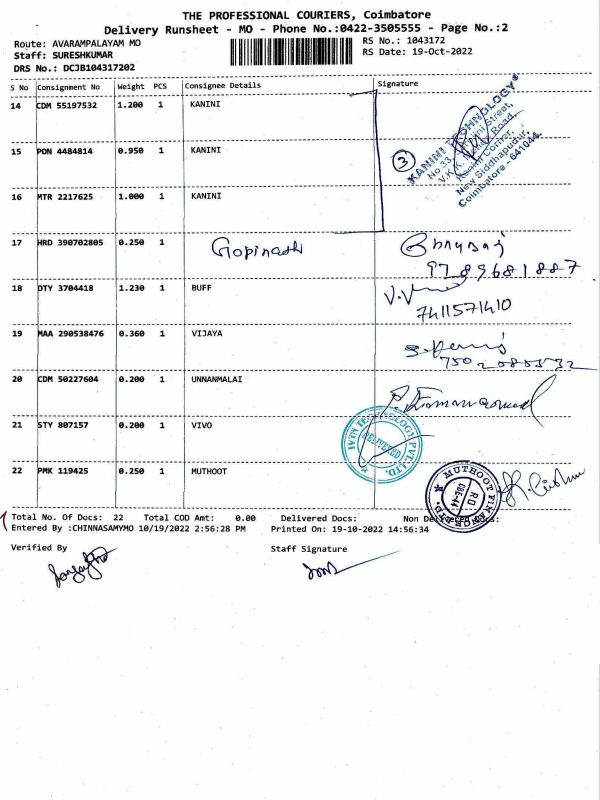 THE PROFESSIONAL COURIERS, Coimbatore
Delivery Runsheet - MO - Phone No.:0422-3505555 - Page No.:2
Route: AVARAMPALAYAM MO
RS No.: 1043172
Staff: SURESHKUMAR
RS Date: 19-Oct-2022
DRS No.: DCJB104317202
S No Consignment No Weight PCS Consignee Details Signature
14 CDM 55197532 1.200 1 KANINI
KANINI TECHNOLOGY
15 PON 4484814 0.950 1 KANINI
3
New Siddhapudur,
Coimbatore - 641044.
16 MTR 2217625 1.000 1 KANINI
17 HRD 390702805 0.250 1 Gopinath
9789681887
18 DTY 3704418 1.230 1 BUFF
7411571410
19 MAA 290538476 0.360 1 VIJAYA
20 CDM 50227604 0.200 1 UNNANMALAI
21 STY 807157 0.200 1 VIVO
TECHNOLOGY PVT. LTD.
DELIVERED
22 PMK 119425 0.250 1 MUTHOOT
MUTHOOT FINANCE LTD.
RO
CBE-44
Total No. Of Docs: 22 Total COD Amt: 0.00 Delivered Docs: Non Delivered Docs:
Entered By :CHINNASAMYMO 10/19/2022 2:56:28 PM Printed On: 19-10-2022 14:56:34
Verified By Staff Signature